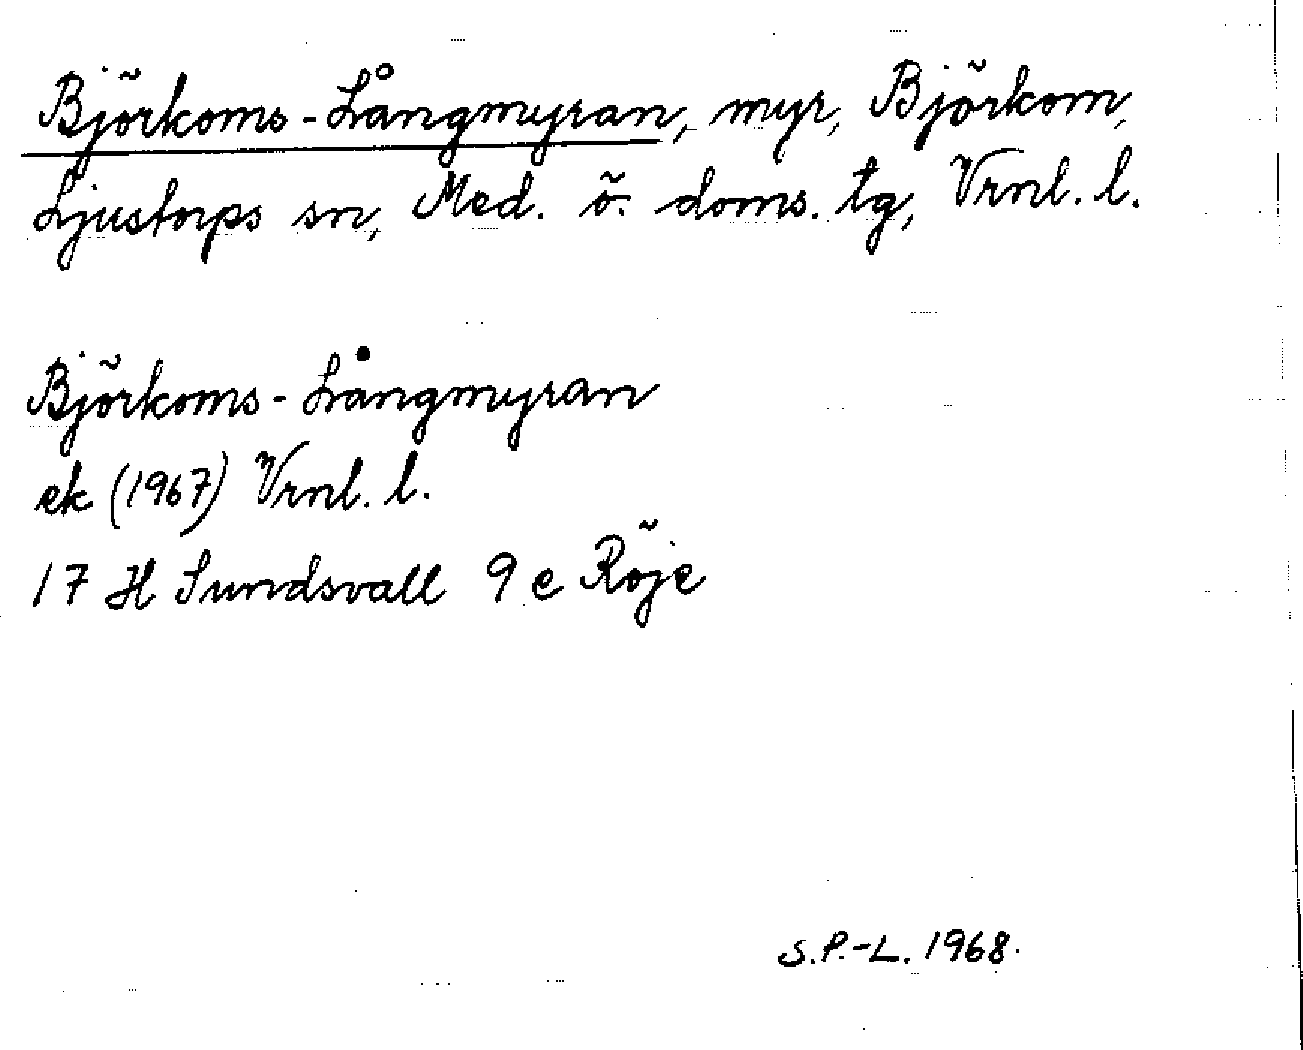 Björkoms-Långmyran, myr, Björkom,
Ljustorps sn, Med. ö. doms. tg, Vrnl. l.
Björkoms-Långmyran
ek (1967) Vrnl. l.
17 H Sundsvall 9 e Röje
S.P.-L. 1968.